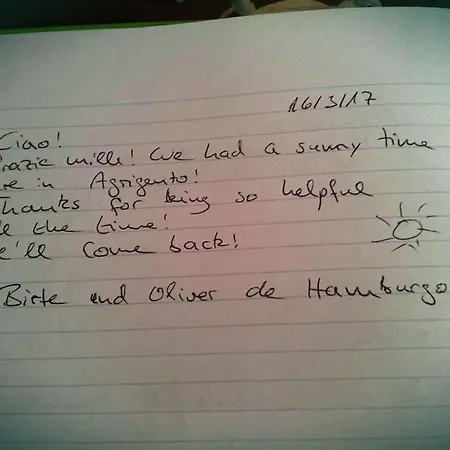 16/3/17
Ciao!
Grazie mille! We had a sunny time
re in Agrigento!
Thanks for being so helpful
ll the time!
e'll come back!
Birte and Oliver de Hamburgo